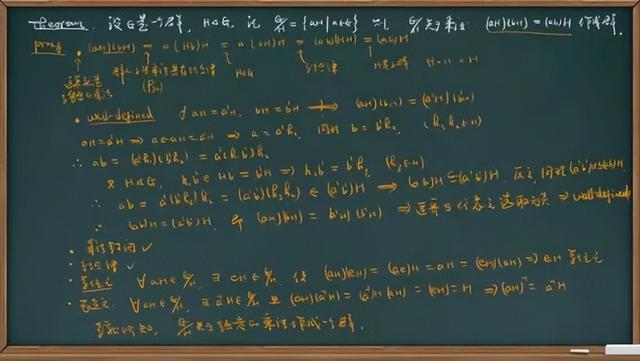 Theorem. 设G是一个群, H⊲G, 记 G/H = {aH | a∈G} 则 G/H 关于乘法 (aH)(bH) = (ab)H 作成群.
proof. (aH)(bH) = a(Hb)H = a(bH)H = (ab)(HH) = (ab)H
H⊲G 结合律
• well-defined 若 aH = a'H, bH = b'H ⟹ (aH)(bH) = (a'H)(b'H)
aH = a'H ⟹ a∈aH = a'H ⟹ a = a'h₁, 同理 b = b'h₂ (h₁, h₂∈H)
∴ ab = (a'h₁)(b'h₂) = a'(h₁b')h₂
又 H⊲G, h₁b' ∈ Hb' = b'H ⟹ h₁b' = b'h₃ (h₃∈H)
∴ ab = a'(b'h₃)h₂ = (a'b')(h₃h₂) ∈ (a'b')H ⟹ (ab)H ⊆ (a'b')H 反之同理 (a'b')H ⊆ (ab)H
∴ (ab)H = (a'b')H. 即 (aH)(bH) = (a'H)(b'H) ⟹ 运算与代表元选取无关 ⟹ well-defined
• 乘法封闭 ✓
• 结合律 ✓
• 单位元 ∀aH∈G/H, ∃ eH∈G/H, 使 (aH)(eH) = (ae)H = aH = (eH)(aH) ⟹ eH 单位元
• 逆元 ∀aH∈G/H, ∃ a⁻¹H∈G/H 且 (aH)(a⁻¹H) = (a⁻¹H)(aH) = (eH) = H ⟹ (aH)⁻¹ = a⁻¹H
G/H 关于 乘法作成一个群.